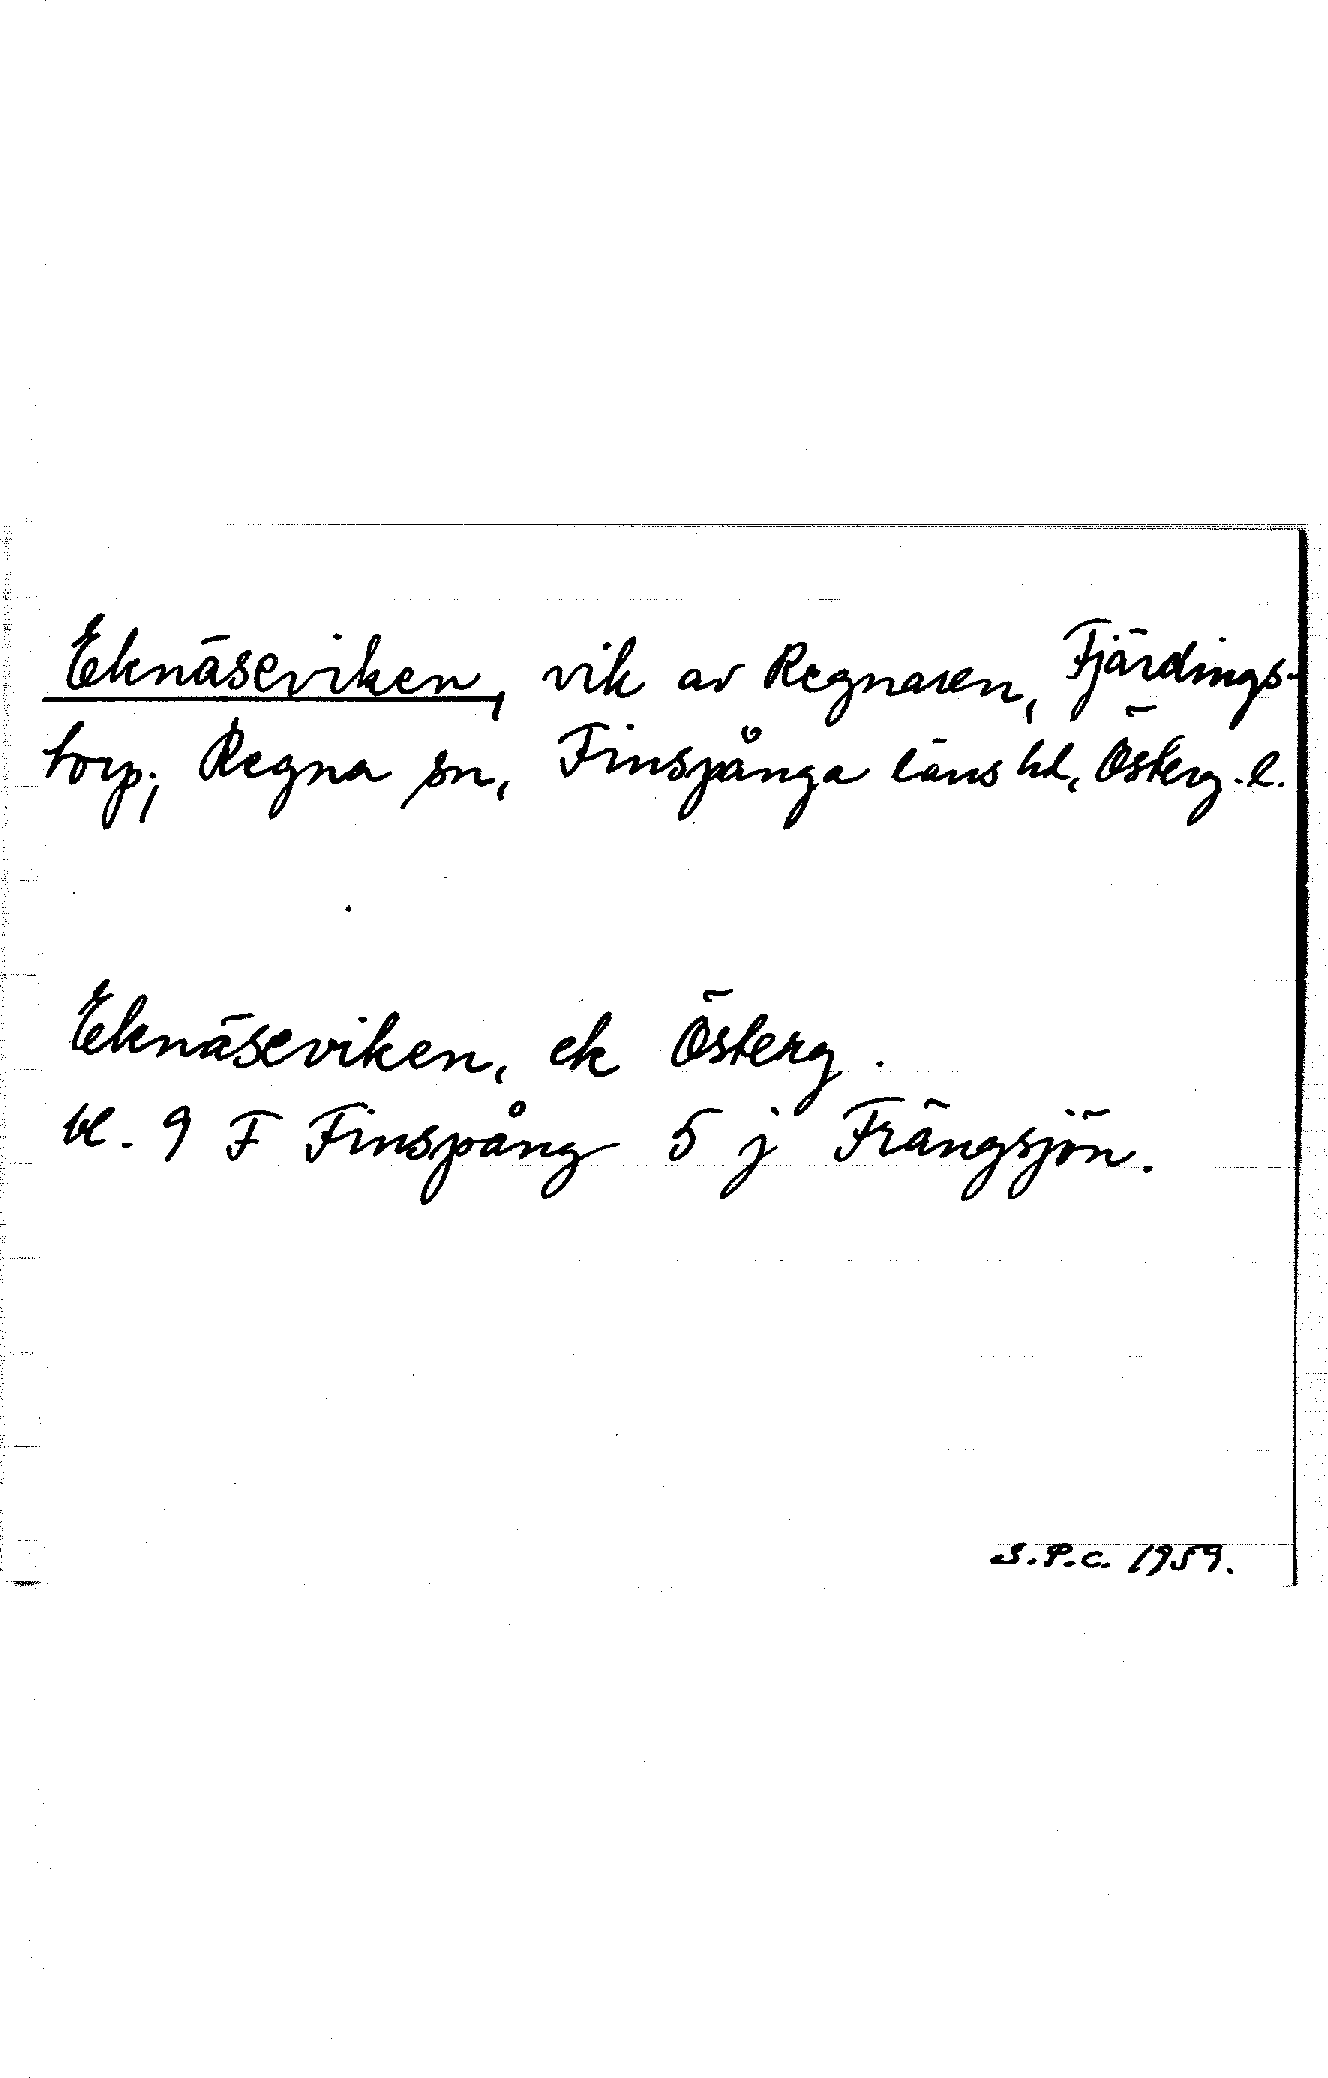 Eknäseviken, vik av Regnaren, Fjärdings-
torp, Regna sn, Finspånga läns hd, Österg. l.
Eknäseviken, ek Österg.
bl. 9 F Finspång 5 j Frängsjön.
S.P.C. 1959.